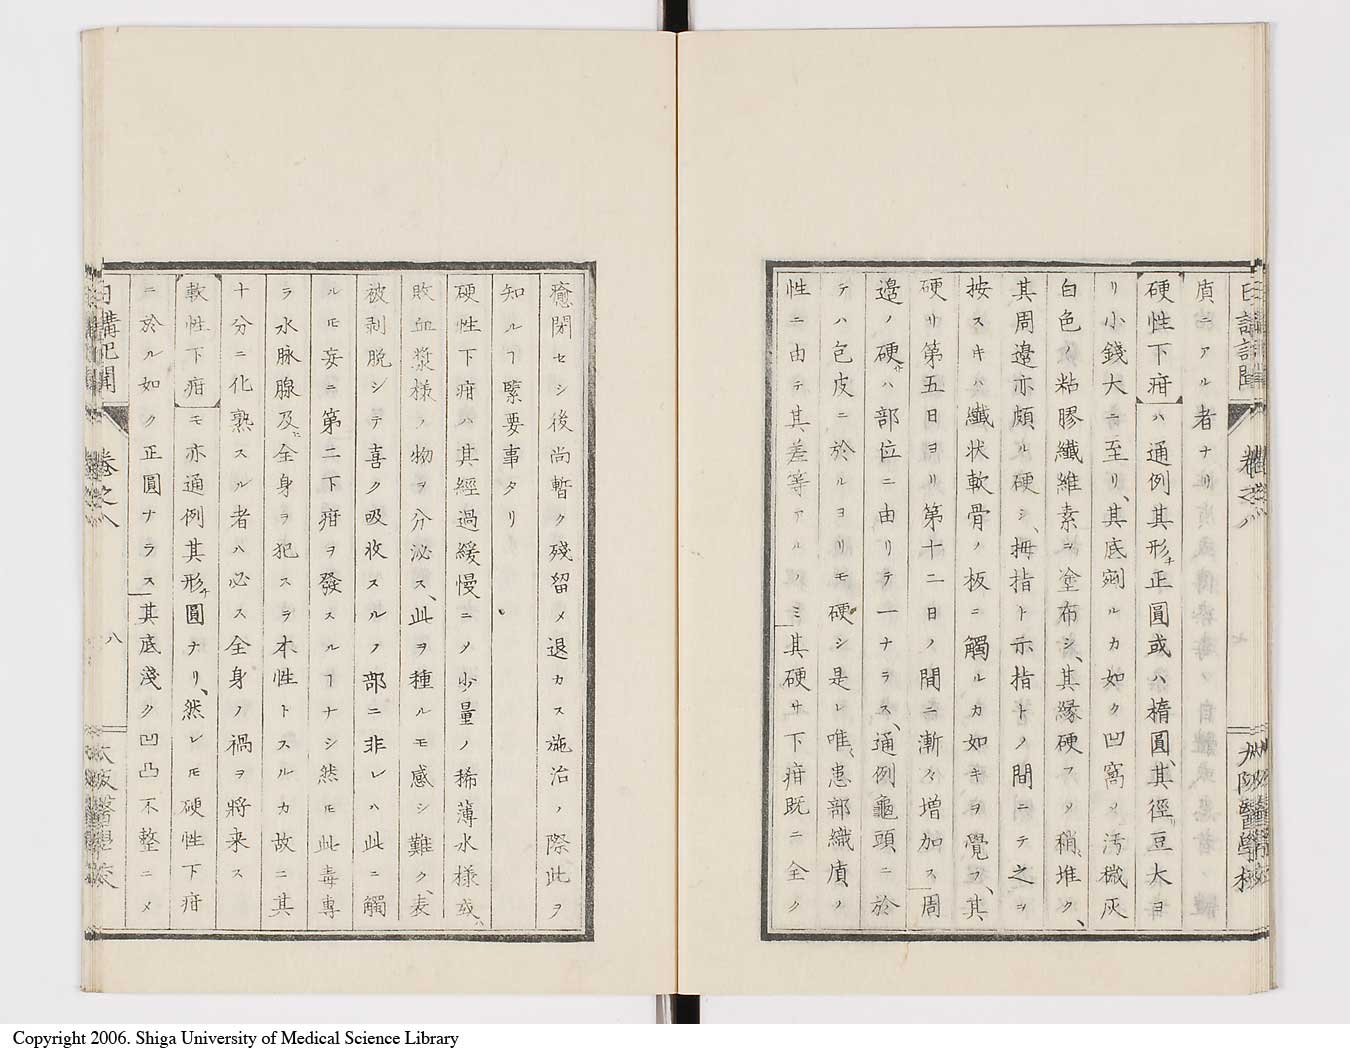 質ニアル者ナリ
硬性下疳ハ通例其形チ正圓或ハ楕圓、其徑リ豆大ヨ
リ小錢大ニ至リ、其底剜ルカ如ク凹窩メ汚穢灰
白色ノ粘膠纎維素ヲ塗布シ、其縁硬フメ稍ヤ堆ク、
其周邉亦頗ル硬シ、拇指ト示指トノ間ニテ之ヲ
按スキハ纎状軟骨ノ板ニ觸ルカ如キヲ覺フ、其
硬リ第五日ヨリ第十二日ノ間ニ漸々増加ス周
邉ノ硬サハ部位ニ由リテ一ナラス、通例龜頭ニ於
テハ包皮ニ於ルヨリモ硬シ是レ唯、患部織質ノ
性ニ由テ其差等アルノミ其硬サ下疳既ニ全ク
癒閉セシ後尚暫ク殘留メ退カス施治ノ際此ヲ
知ルヿ緊要事タリ
硬性下疳ハ其經過緩慢ニメ少量ノ稀薄水様或ハ
敗血漿様ノ物ヲ分泌ス、此ヲ種ルモ感シ難ク、表
被剥脱シテ喜ク吸收スルノ部ニ非レハ此ニ觸
ルモ妄ニ第二下疳ヲ發スルヿナシ然モ此毒專
ラ水脉腺及ヒ全身ヲ犯スヲ本性トスルカ故ニ其
十分ニ化熟スル者ハ必ス全身ノ禍ヲ將来ス
軟性下疳モ亦通例其形チ圓ナリ、然レモ硬性下疳
ニ於ル如ク正圓ナラス其底淺ク凹凸不整ニメ
日講記聞
卷之八
八
大阪醫學校
Copyright 2006. Shiga University of Medical Science Library